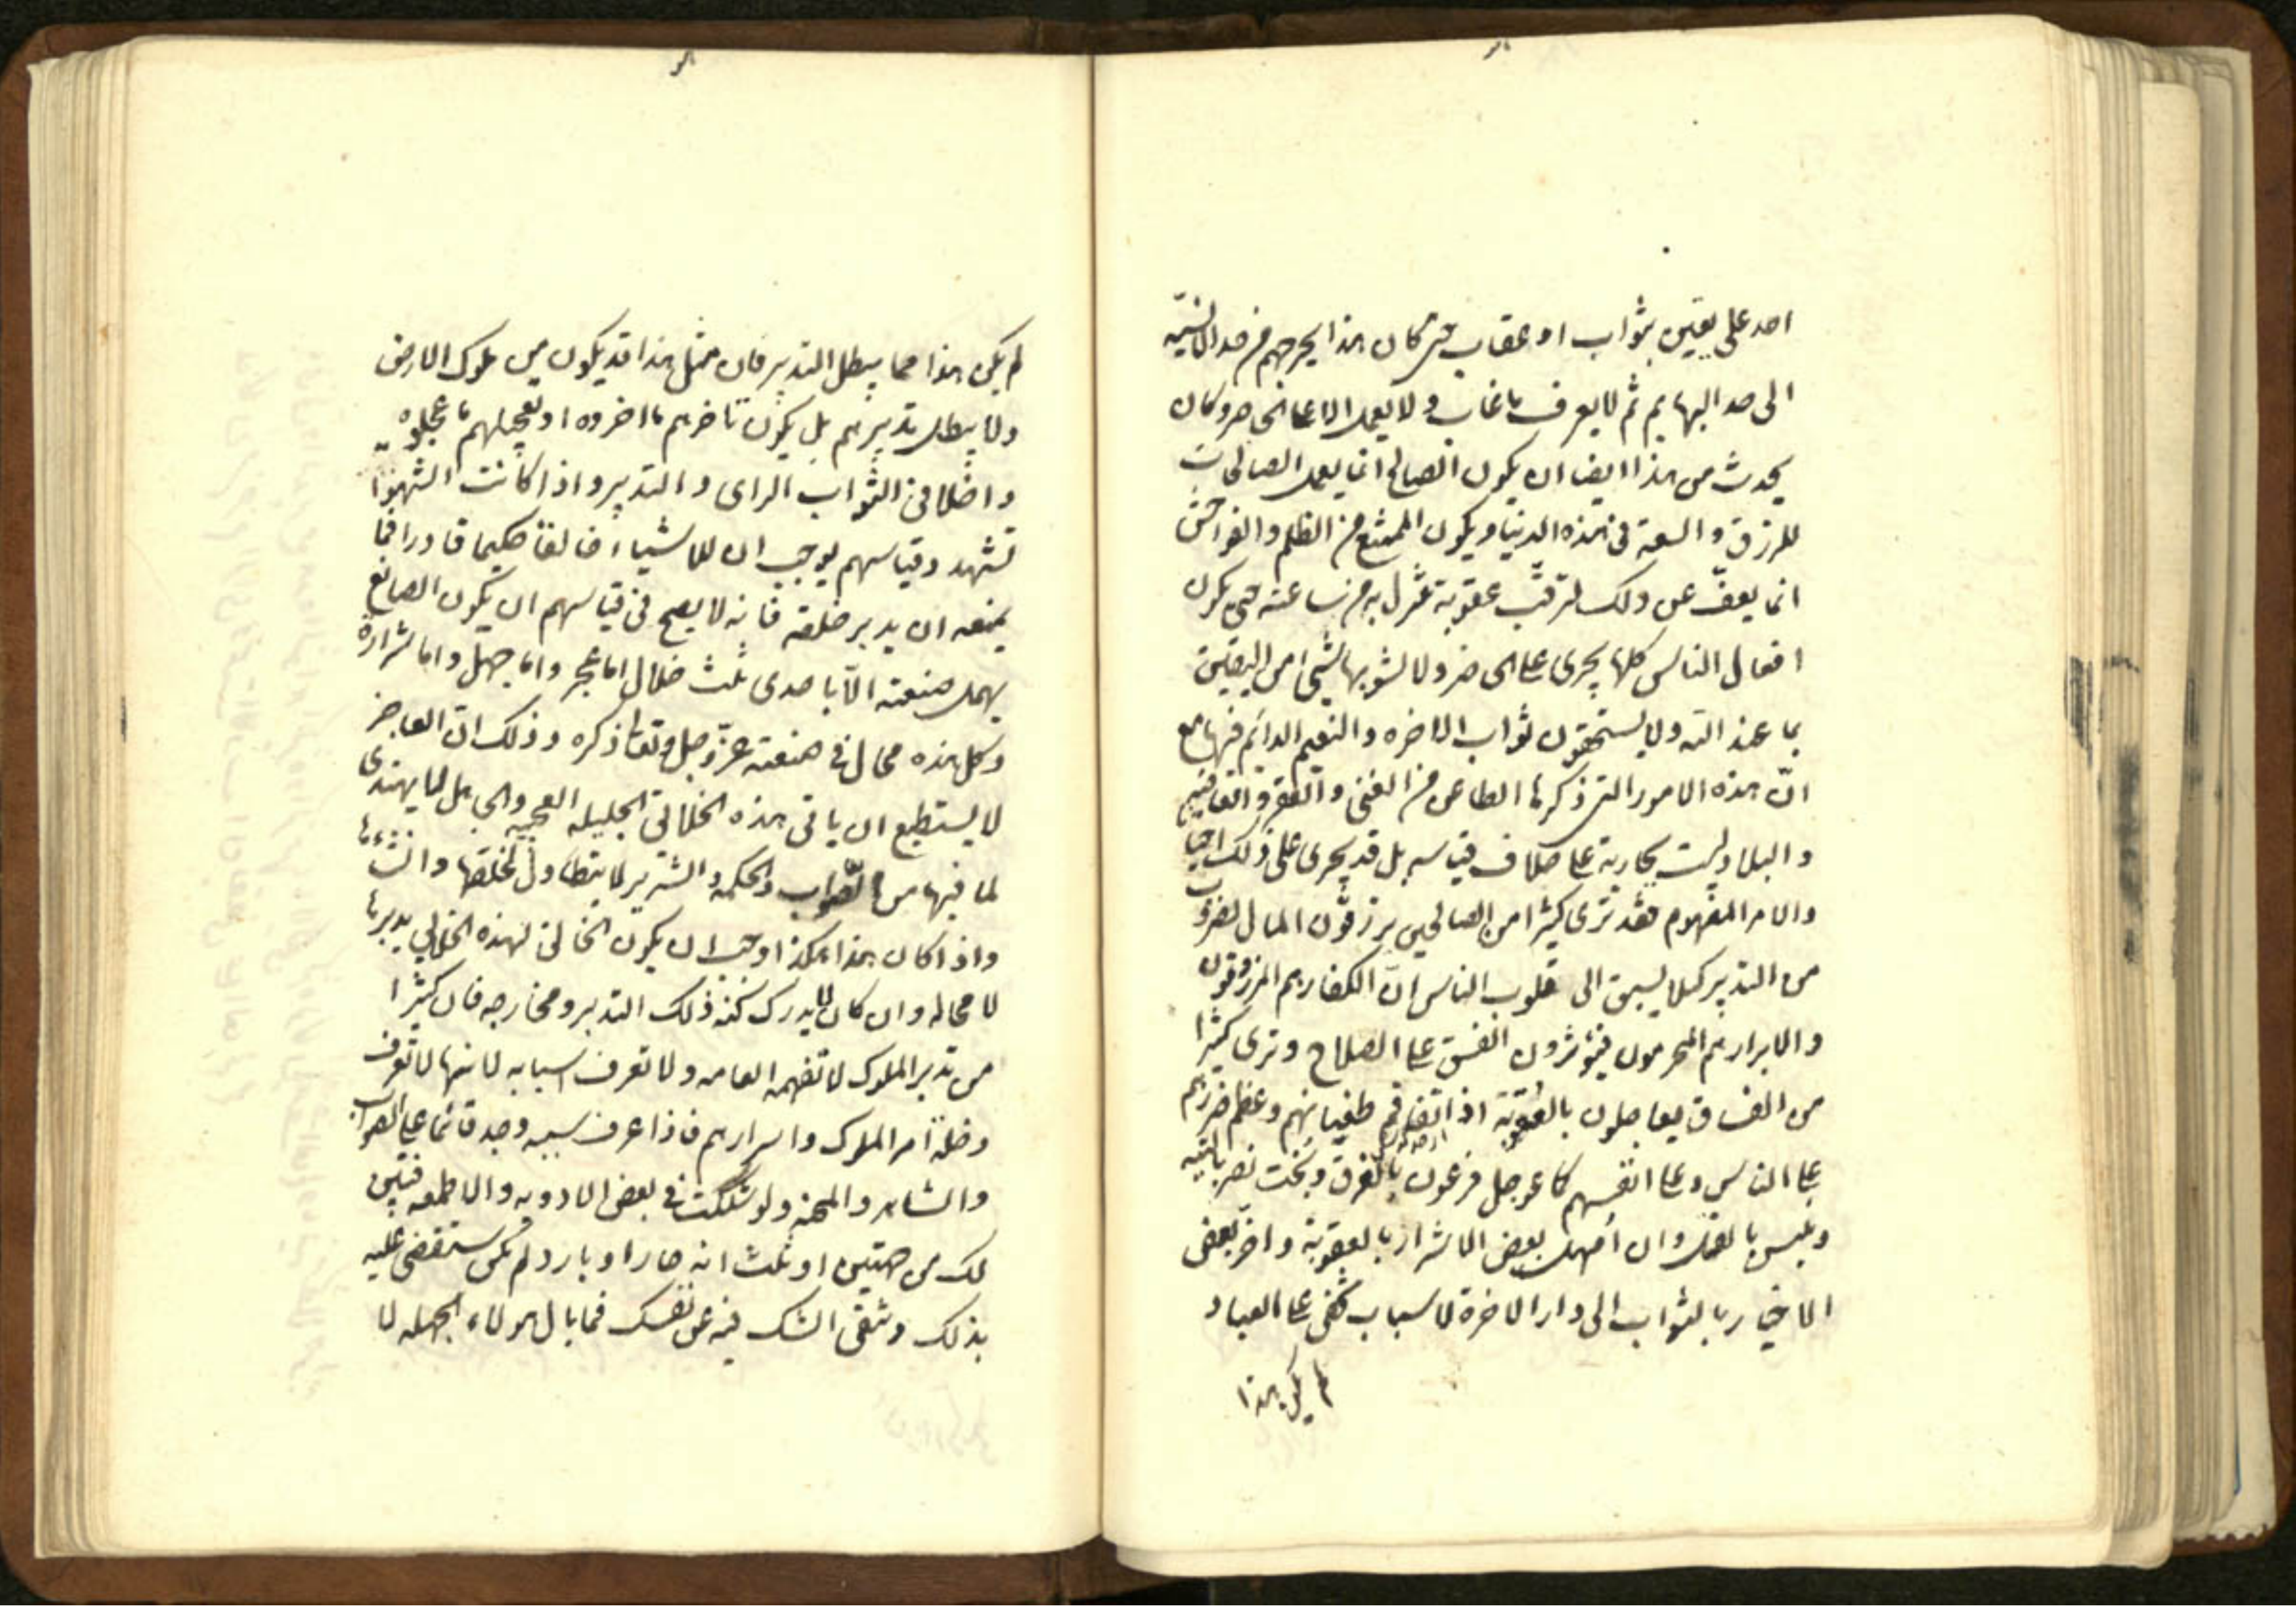 احد على يقين بثواب او عقاب حتى كان هذا يخرجهم من حد الانسيّه
الى حد البهايم ثم لا يعرف ما غاب ولا يعمل الا على الحاضر وكان
يحدث من هذا ايضا ان يكون الصالح انما يعمل الصالحات
للرزق والسعة فى هذه الدنيا ويكون الممتنع من الظلم والفواحش
انما يعفّ عن ذلك لترقب عقوبة تنزل به من ساعته حتى يكون
افعال الناس كلها يجرى على الحاضر ولا يشوبها شىء من اليقين
بما عند الله ولا يستحقون ثواب الاخره والنعيم الدائم فيها مع
انّ هذه الامور التى ذكرها الطاعن من الغنى والفقر والعافيه
والبلاء ليست بجارية على خلاف قياسه بل قد يجرى على ذلك احيانا
والامر المفهوم فقد ترى كثيرا من الصالحين يرزقون المال لضروب
من التدبير كيلا يسبق الى قلوب الناس انّ الكفار هم المرزوقون
والابرار هم المحرمون فيؤثرون الفسق على الصلاح وترى كثيرا
من الفساق يعاجلون بالعقوبة اذا تفاقم طغيانهم وعظم ضررهم
على الناس وعلى انفسهم كما عوجل فرعون بالغرق وبخت نصر بالتيه
وبلبيس بالقتل وان أمهل بعض الاشرار بالعقوبة واخّر بعض
الاخيار بالثواب الى دار الاخرة لاسباب تخفى على العباد
لم يكن هذا
لم يكن هذا مما يبطل التدبير فان مثل هذا قد يكون من ملوك الارض
ولا يبطل تدبيرهم بل يكون تاخيرهم ما اخروه او تعجيلهم ما عجلوه
داخلا فى الثواب الراى والتدبير واذا كانت الشهوا
تشهد وقياسهم يوجب ان للاشياء خالقا حكيما قادرا فما
يمنعه ان يدبر خلقه فانه لا يصح فى قياسهم ان يكون الصانع
يهمل صنعته الّا باحدى ثلث خلال اما عجز واما جهل واما شرارة
وكل هذه محال فى صنعته عزّ وجل وتعالى ذكره وذلك انّ العاجز
لا يستطيع ان ياتى بهذه الخلائق الجليله العجيبه والجاهل لا يهتدى
لما فيها من الصواب والحكمه والشرير لا يتطاول لخلقها وانشائها
واذا كان هذا هكذا وجب ان يكون الخالق لهذه الخلائق يدبرها
لا محاله وان كان لا يدرك كنه ذلك التدبير ومخارجه فان كثيرا
من تدبير الملوك لا تفهمه العامه ولا تعرف اسبابه لانها لا تعرف
دخلة امر الملوك واسرارهم فاذا عرف سببه وجد قائما على الصواب
والشاهد المحنه ولو شككت فى بعض الادويه والاطعمه فتبين
لك من جهتين او ثلث انه حار او بارد لم تكن ستقضى عليه
بذلك وتنفى الشك فيه عن نفسك فما بال هولاء الجهله لا